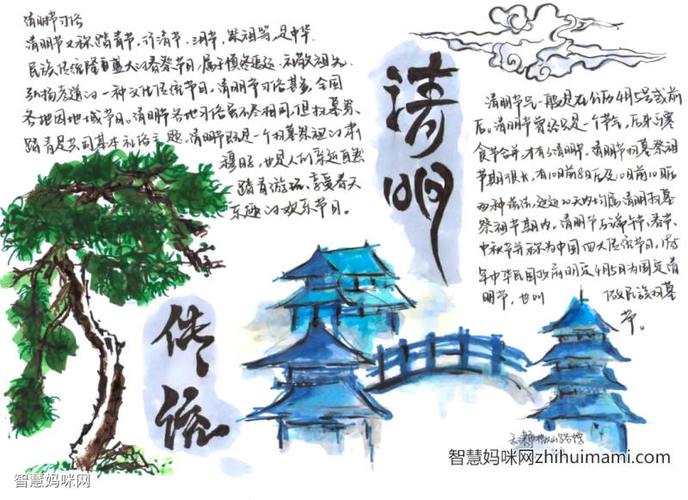 清明节习俗
清明节又称踏青节、行清节、三月节、祭祖节等,是中华
民族传统隆重盛大的春祭节日,属于慎终追远、礼敬祖先、
弘扬孝道的一种文化传统节日。清明节习俗甚多,全国
各地因地域节日。清明节各地习俗虽不尽相同,但扫墓祭
踏青是共同基本礼俗主题。清明节既是一个扫墓祭祖的肃
穆日,也是人们亲近自然
踏青游玩、享受春天
乐趣的欢乐节日。
清明
传统
清明节一般是在公历4月5号或前
后。清明节曾经只是一个节气,后来与寒
食节合并,才有了清明节。清明节扫墓祭祖
节期很长,有10日前8日后及10日前10日后
两种说法,这近20天内均属清明扫墓
祭祖节期内。清明节与端午节、春节、
中秋节并称为中国四大传统节日。
年中华民国政府明定4月5日为国定清
明节,也叫 做民族扫墓
节。
智慧妈咪网
智慧妈咪网zhihuimami.com